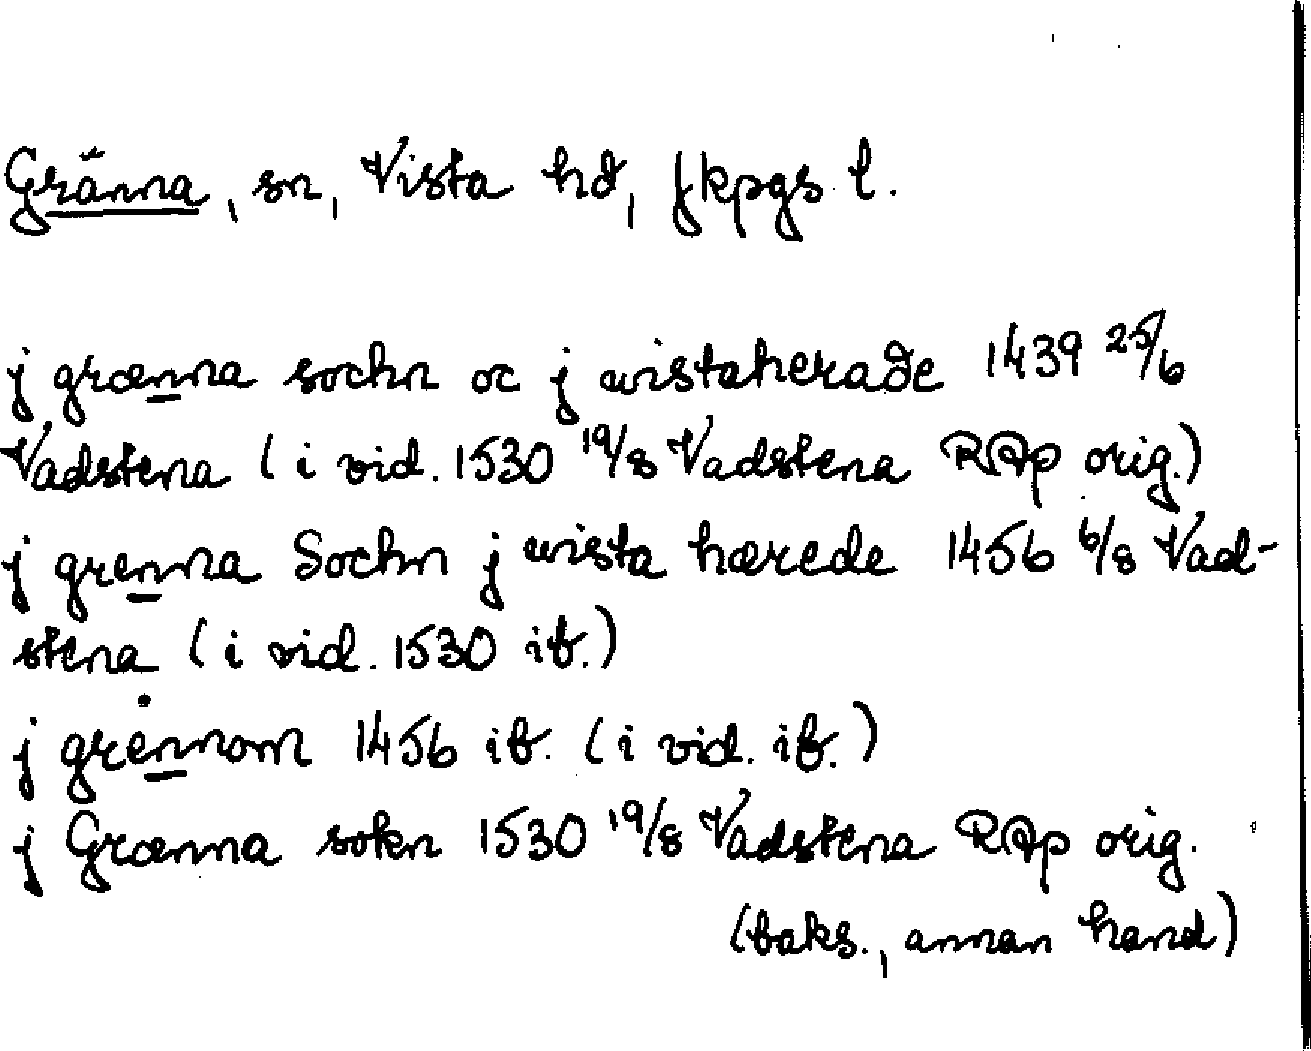 Gränna, sn, Vista hd, Jkpgs l.
j grænna sochn oc j wistaheraðe 1439 25/6
Vadstena (i vid. 1530 19/8 Vadstena RAp orig.)
j grenna Sochn j wista hærede 1456 6/8 Vad-
stena (i vid. 1530 ib.)
j grennom 1456 ib. (i vid. ib.)
j Grænna sokn 1530 19/8 Vadstena RAp orig.
(baks., annan hand)